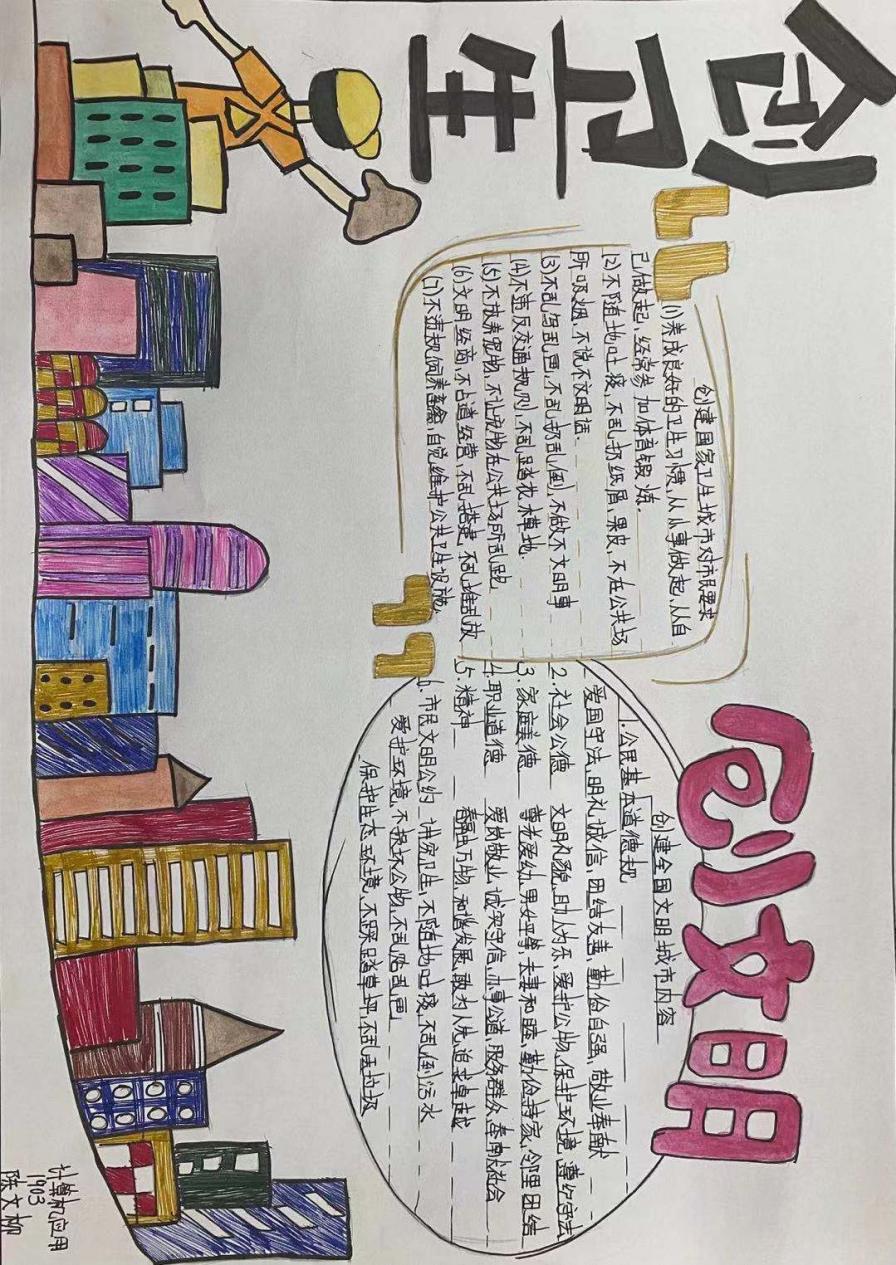 创卫生
创文明
创建国家卫生城市对市民要求
(1)养成良好的卫生习惯,从小事做起,从自
己做起、经常参加体育锻炼.
(2)不随地吐痰,不乱扔纸屑、果皮,不在公共场
所吸烟.不说不文明话.
(3)不乱写乱画,不乱扔乱倒,不做不文明事
(4)不违反交通规则,不乱踏花木草地.
(5)不放养宠物,不让宠物在公共场所乱跑
(6)文明经商,不占道经营,不乱搭建,不乱堆乱放
(7)不违规饲养畜禽,自觉维护公共卫生设施.
创建全国文明城市内容
1.公民基本道德规
爱国守法,明礼诚信,团结友善,勤俭自强,敬业奉献
2.社会公德 文明礼貌,助人为乐,爱护公物,保护环境,遵纪守法
3.家庭美德 尊老爱幼,男女平等,夫妻和睦,勤俭持家,邻里团结
4.职业道德 爱岗敬业,诚实守信,办事公道,服务群众,奉献社会
5.精神 万物,和谐发展,敢为人先,追求卓越
6.市民文明公约 讲究卫生,不随地吐痰,不乱倒污水
爱护环境,不损坏公物,不乱贴乱画
保护生态环境,不踩踏草坪,不乱丢垃圾
计算机应用
1903
陈文柳